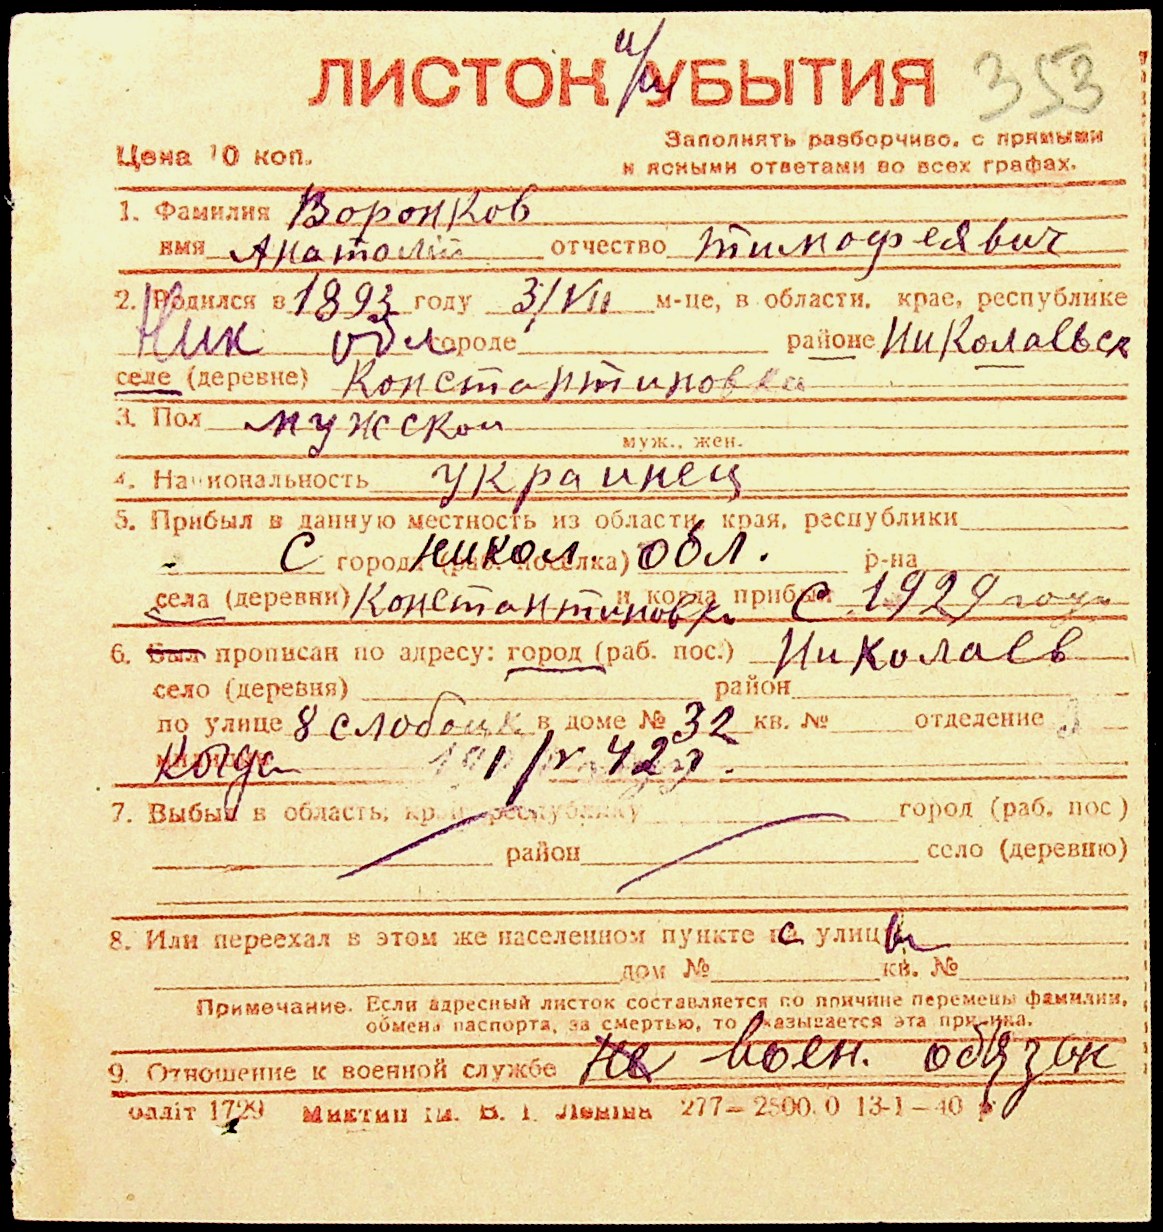 ЛИСТОК УБЫТИЯ 353
Заполнять разборчиво, с прямыми
Цена 10 коп.
и ясными ответами во всех графах.
1. Фамилия Воронков
имя Анатолий отчество Тимофеявич
2. Родился в 1893 году 3/VII м-це, в области, крае, республике
Ник обл городе районе Николаевск
селе (деревне) Константиновка
3. Пол мужской
муж., жен.
4. Национальность украинец
5. Прибыл в данную местность из области, края, республики
С города Никол. (раб. поселка) обл. р-на
села (деревни) Константиновка и когда прибыл С 1929 года
6. Был прописан по адресу: город (раб. пос.) Николаев
село (деревня) район
по улице 8 слободск в доме № 32 кв. № отделение 3
милиции когда 42 г.
7. Выбыл в область, край, республику город (раб. пос)
район село (деревню)
8. Или переехал в этом же населенном пункте с улицы
дом № кв. №
Примечание. Если адресный листок составляется по причине перемены фамилии,
обмена паспорта, за смертью, то указывается эта причина.
9. Отношение к военной службе не воен. обязан
1729 ім. В. І. Леніна 277—2500.0 13-1—40 р